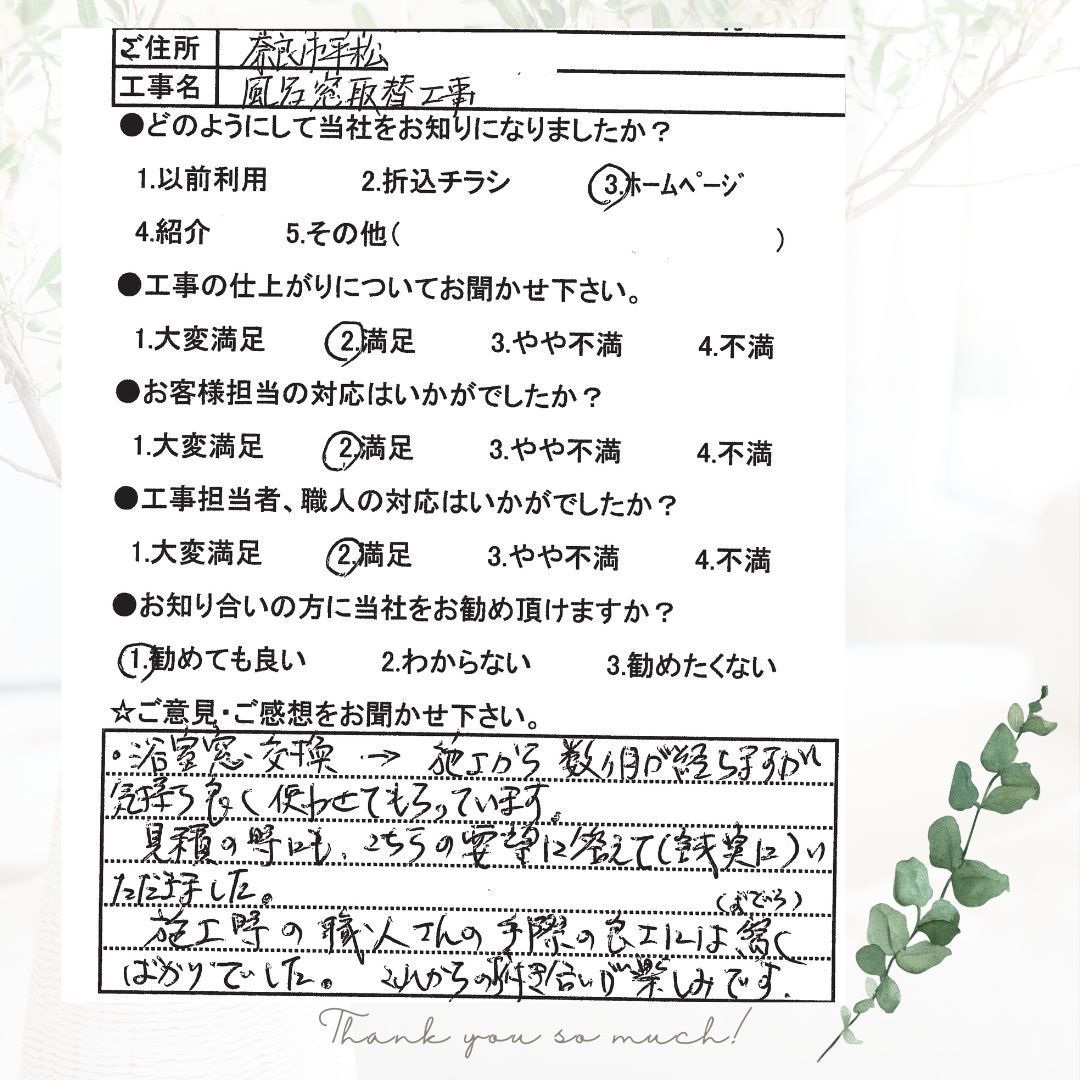 ご住所 奈良市平松
工事名 風呂窓取替工事
●どのようにして当社をお知りになりましたか？
1.以前利用 2.折込チラシ 3.ホームページ
4.紹介 5.その他( )
●工事の仕上がりについてお聞かせ下さい。
1.大変満足 2.満足 3.やや不満 4.不満
●お客様担当の対応はいかがでしたか？
1.大変満足 2.満足 3.やや不満 4.不満
●工事担当者、職人の対応はいかがでしたか？
1.大変満足 2.満足 3.やや不満 4.不満
●お知り合いの方に当社をお勧め頂けますか？
1.勧めても良い 2.わからない 3.勧めたくない
☆ご意見・ご感想をお聞かせ下さい。
・浴室窓交換 → 施工から数ヶ月が経ちますが
気持ち良く使わせてもらっています。
見積の時にも、こちらの要望に答えて(誠実に)い
ただきました。
施工時の職人さんの手際の良さには驚く
ばかりでした。これからの付き合いが楽しみです.
Thank you so much!